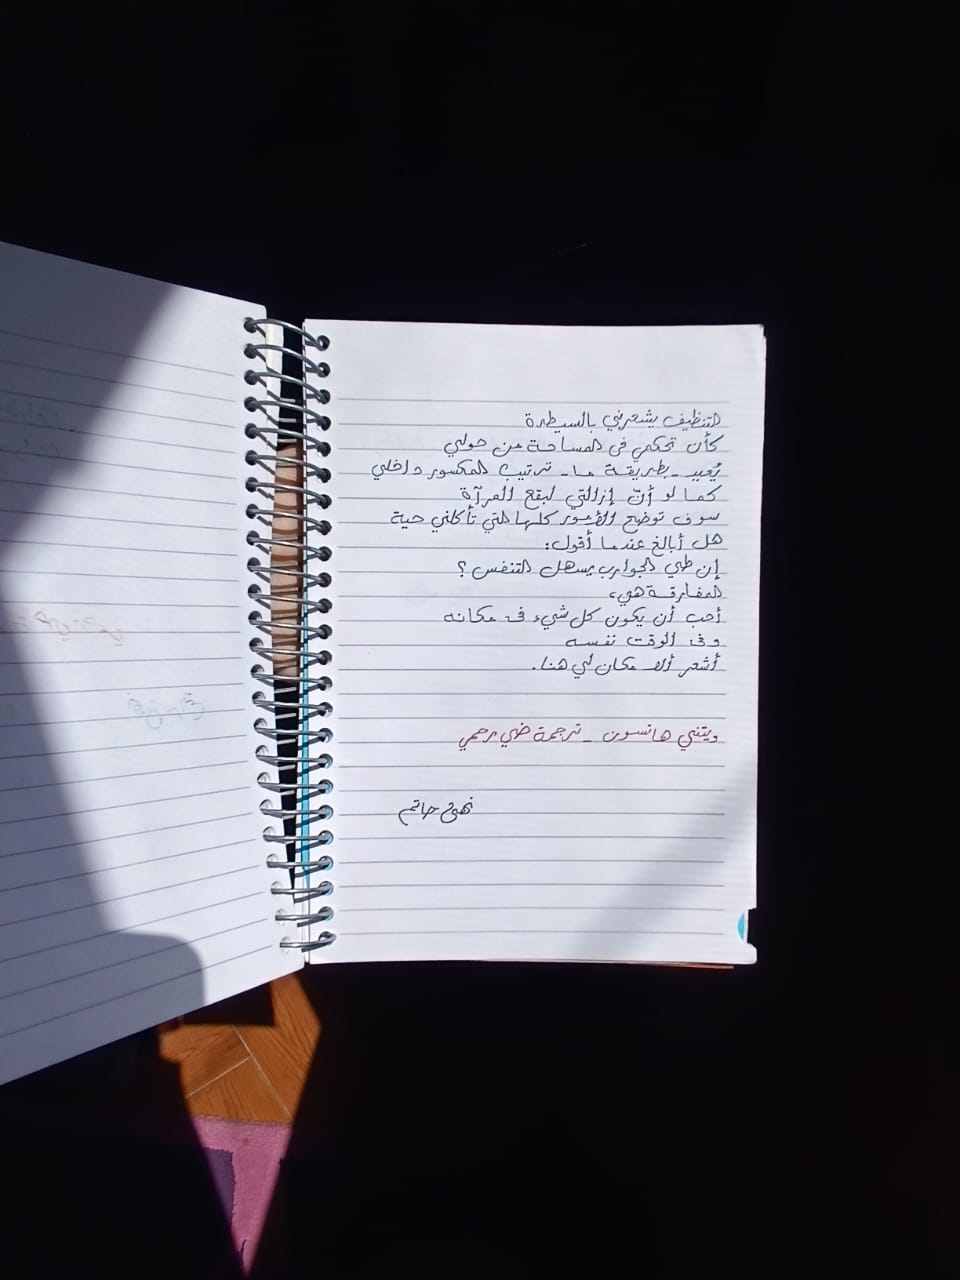 التنظيف يشعرني بالسيطرة
كأن تحكمي في المساحة من حولي
يُعيد - بطريقة ما - ترتيب المكسور داخلي
كما لو أنّ إزالتي لبقع المرآة
سوف توضح الأمور كلها التي تأكلني حية
هل أبالغ عندما أقول:
إن طي الجوارب يسهل التنفس؟
المفارقة هي،
أحب أن يكون كل شيء في مكانه
وفي الوقت نفسه
أشعر ألا مكان لي هنا.
ويتني هانسون - ترجمة ضي رحمي
حاتم